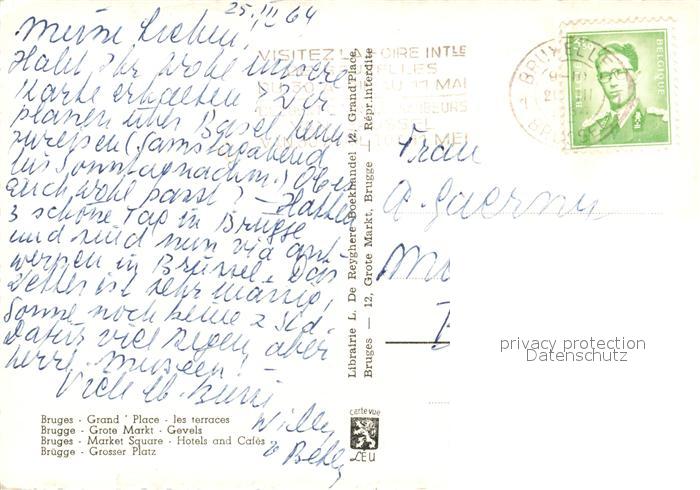 25.III 64
Meine Lieben,
Habt Ihr wohl unsere
Karte erhalten? Wir
planen über Basel heim-
zureisen (Samstagabend
bis Sonntagnachm.) Ob es
auch wohl passt? – Hatten
3 schöne Tag in Brügge
und sind nun via Ant-
werpen in Brüssel. Das
Wetter ist sehr mässig,
Sonne noch keine 2 Std.
Dafür viel Regen, aber
herrl. Museen! –
Viele lb. Grüsse
Willy
u Bethy
Bruges - Grand' Place - les terraces
Brugge - Grote Markt - Gevels
Bruges - Market Square - Hotels and Cafés
Brügge - Grosser Platz
Librairie L. De Reyghere Boekhandel 12, Grand'Place,
Bruges — 12, Grote Markt, Brugge — Répr. interdite
carte vue
LEU
VISITEZ FOIRE INTLE
AU 11 MAI
MEI
BRUXELLES
BRUSSEL
BELGIQUE
BELGIE
Frau
A.
privacy protection
Datenschutz